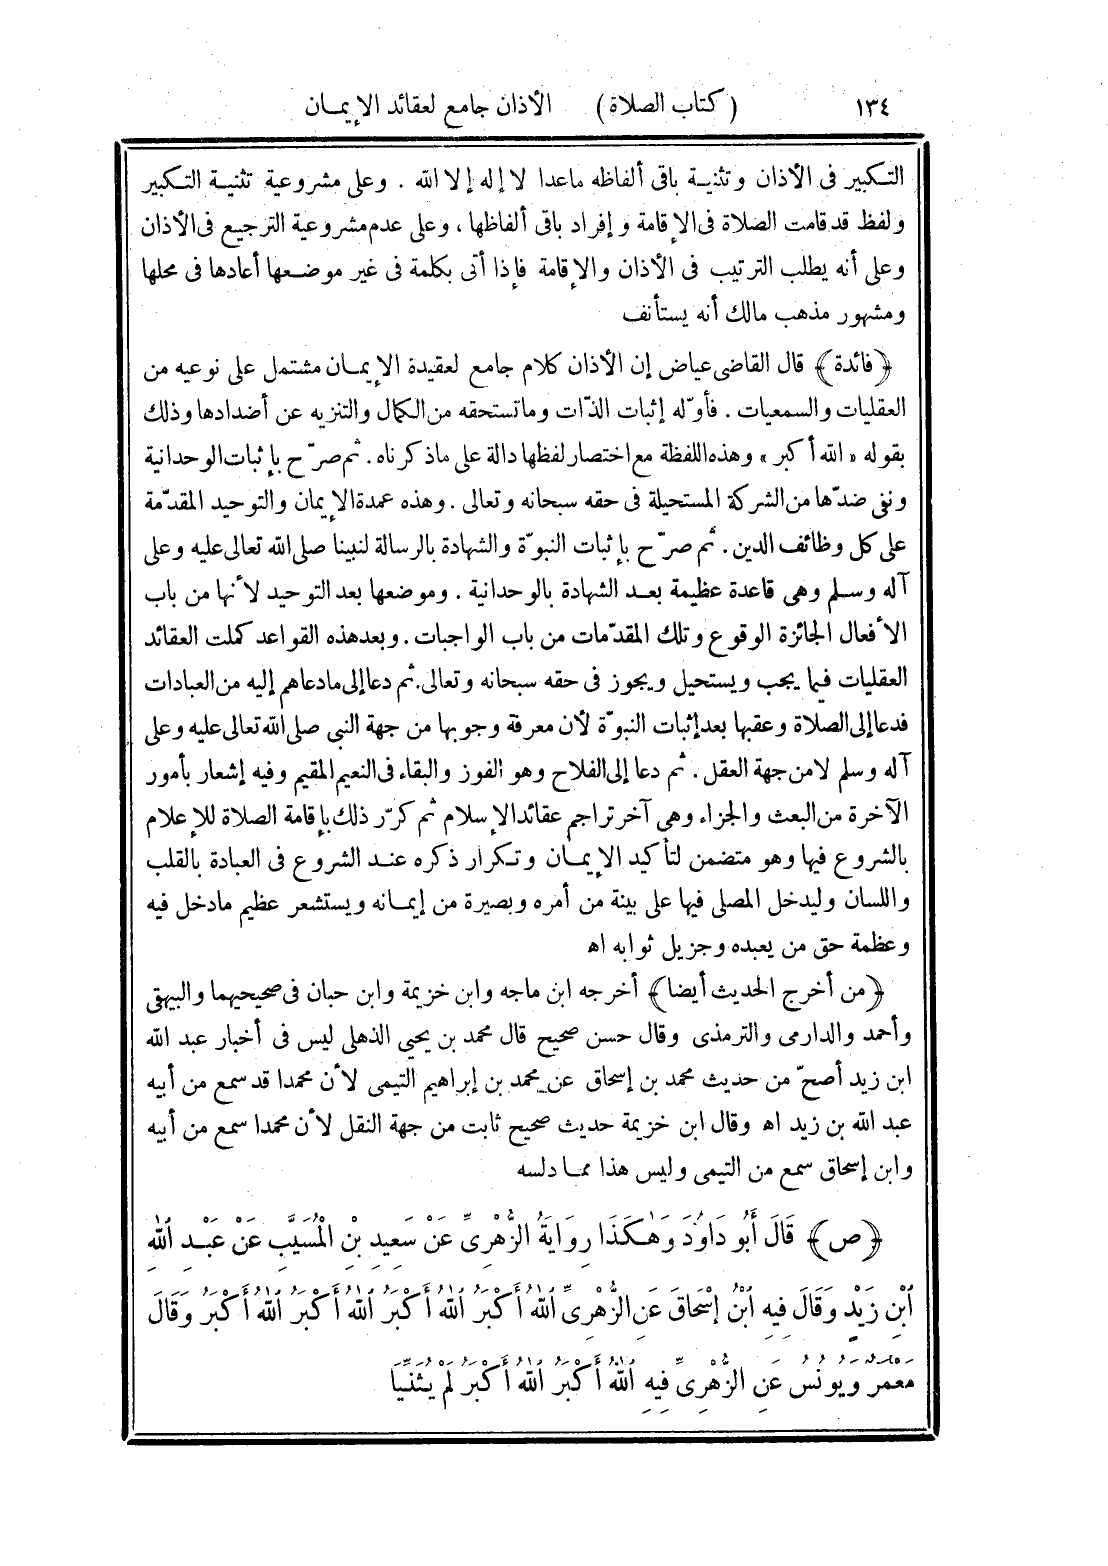 ١٣٤ (كتاب الصلاة) الأذان جامع لعقائد الإيمـان
التـكبير فى الأذان وتثنيـة باقى ألفاظه ماعدا لا إله إلا الله . وعلى مشروعية تثنيـة التـكبير
ولفظ قد قامت الصلاة فى الإقامة وإفراد باقى ألفاظها ، وعلى عدم مشروعية الترجيع فى الأذان
وعلى أنه يطلب الترتيب فى الأذان والإقامة فإذا أتى بكلمة فى غير موضـعها أعادها فى محلها
ومشهور مذهب مالك أنه يستأنف
﴿فائدة﴾ قال القاضى عياض إن الأذان كلام جامع لعقيدة الإيمـان مشتمل على نوعيه من
العقليات والسمعيات . فأوّله إثبات الذّات وماتستحقه من الكمال والتنزيه عن أضدادها وذلك
بقوله «الله أكبر» وهذه اللفظة مع اختصار لفظها دالة على ماذكرناه. ثم صرّح بإثبات الوحدانية
ونفى ضدّها من الشركة المستحيلة فى حقه سبحانه وتعالى . وهذه عمدة الإيمان والتوحيد المقدّمة
على كل وظائف الدين. ثم صرّح بإثبات النبوّة والشهادة بالرسالة لنبينا صلى الله تعالى عليه وعلى
آله وسـلم وهى قاعدة عظيمة بعـد الشهادة بالوحدانية . وموضعها بعد التوحيد لأنها من باب
الأفعال الجائزة الوقوع وتلك المقدّمات من باب الواجبات . وبعد هذه القواعد كملت العقائد
العقليات فيما يجب ويستحيل ويجوز فى حقه سبحانه وتعالى. ثم دعا إلى مادعاهم إليه من العبادات
فدعا إلى الصلاة وعقبها بعد إثبات النبوّة لأن معرفة وجوبها من جهة النبى صلى الله تعالى عليه وعلى
آله وسلم لا من جهة العقل . ثم دعا إلى الفلاح وهو الفوز والبقاء فى النعيم المقيم وفيه إشعار بأمور
الآخرة من البعث والجزاء وهى آخر تراجم عقائد الإسلام ثم كرّر ذلك بإقامة الصلاة للإعلام
بالشروع فيها وهو متضمن لتأكيد الإيمـان وتـكرار ذكره عنـد الشروع فى العبادة بالقلب
واللسان وليدخل المصلى فيها على بينة من أمره وبصيرة من إيمـانه ويستشعر عظيم مادخل فيه
وعظمة حق من يعبده وجزيل ثوابه اه
﴿من أخرج الحديث أيضا﴾ أخرجه ابن ماجه وابن خزيمة وابن حبان فى صحيحيهما والبيهقى
وأحمد والدارمى والترمذى وقال حسن صحيح قال محمد بن يحيى الذهلى ليس فى أخبار عبد الله
ابن زيد أصحّ من حديث محمد بن إسحاق عن محمد بن إبراهيم التيمى لأن محمدا قد سمع من أبيه
عبد الله بن زيد اه وقال ابن خزيمة حديث صحيح ثابت من جهة النقل لأن محمدا سمع من أبيه
وابن إسحاق سمع من التيمى وليس هذا ممـا دلسه
﴿ص﴾ قَالَ أَبُو دَاوُدَ وَهٰكَذَا رِوَايَةُ الزُّهْرِىِّ عَنْ سَعِيدِ بْنِ الْمُسَيَّبِ عَنْ عَبْـدِ ٱللهِ
ٱبْنِ زَيْدٍ وَقَالَ فِيهِ ٱبْنُ إِسْحَاقَ عَنِ الزُّهْرِىِّ ٱللهُ أَكْبَرُ ٱللهُ أَكْبَرُ ٱللهُ أَكْبَرُ ٱللهُ أَكْبَرُ وَقَالَ
مَعْمَرٌ وَيُونُسُ عَنِ الزُّهْرِىِّ فِيهِ ٱللهُ أَكْبَرُ ٱللهُ أَكْبَرُ لَمْ يُثَنِّيَا